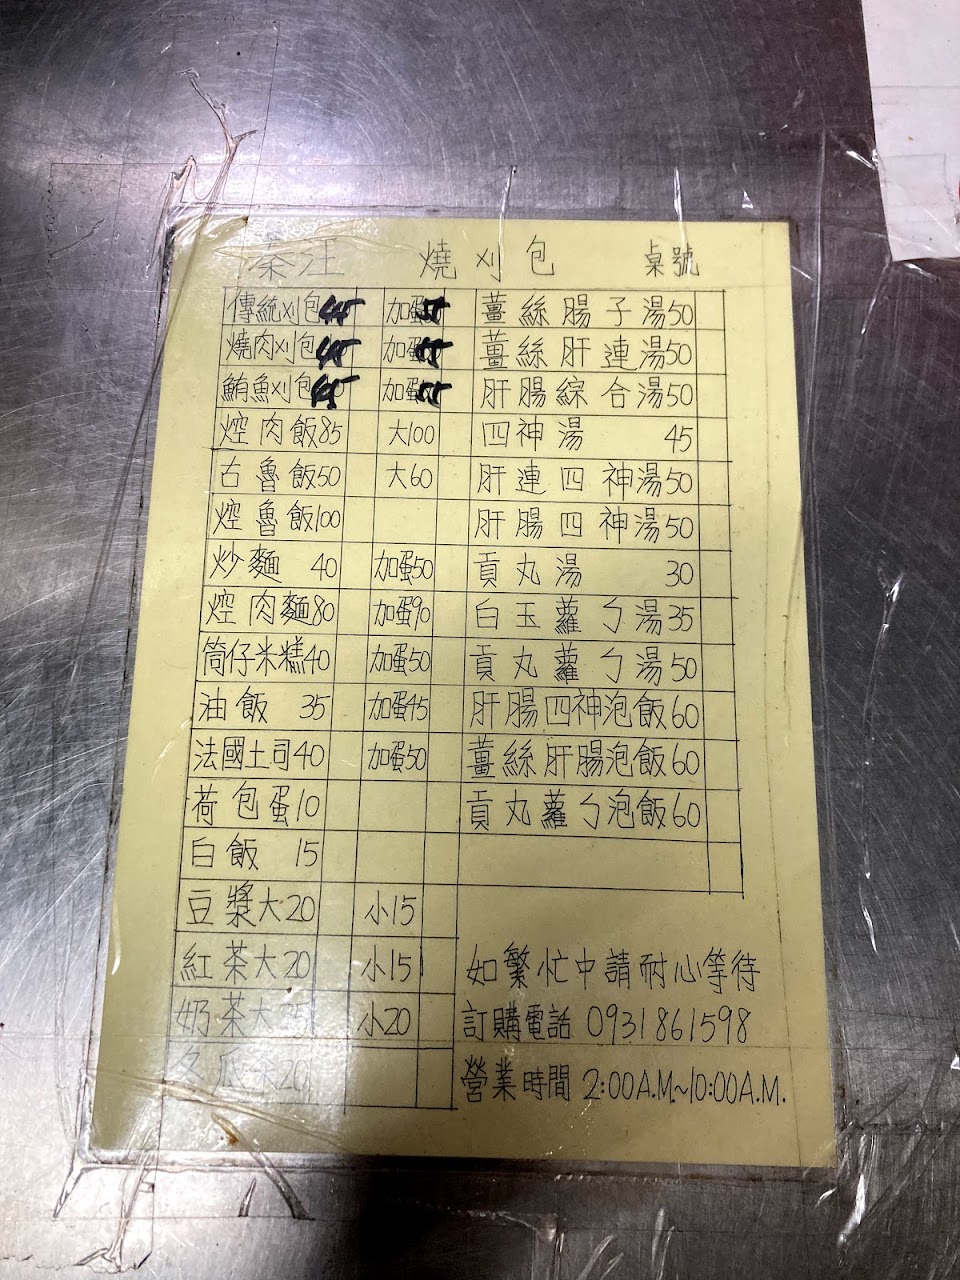 秦汪 燒刈包 桌號
傳統刈包45 加蛋55 薑絲腸子湯50
燒肉刈包45 加蛋55 薑絲肝連湯50
鮪魚刈包45 加蛋55 肝腸綜合湯50
焢肉飯85 大100 四神湯 45
古魯飯50 大60 肝連四神湯50
焢魯飯100 肝腸四神湯50
炒麵 40 加蛋50 貢丸湯 30
焢肉麵80 加蛋90 白玉蘿勹湯35
筒仔米糕40 加蛋50 貢丸蘿勹湯50
油飯 35 加蛋45 肝腸四神泡飯60
法國土司40 加蛋50 薑絲肝腸泡飯60
荷包蛋10 貢丸蘿勹泡飯60
白飯 15
豆漿大20 小15
紅茶大20 小15 如繁忙中請耐心等待
奶茶大25 小20 訂購電話 0931861598
冬瓜茶20 營業時間 2:00A.M.~10:00A.M.